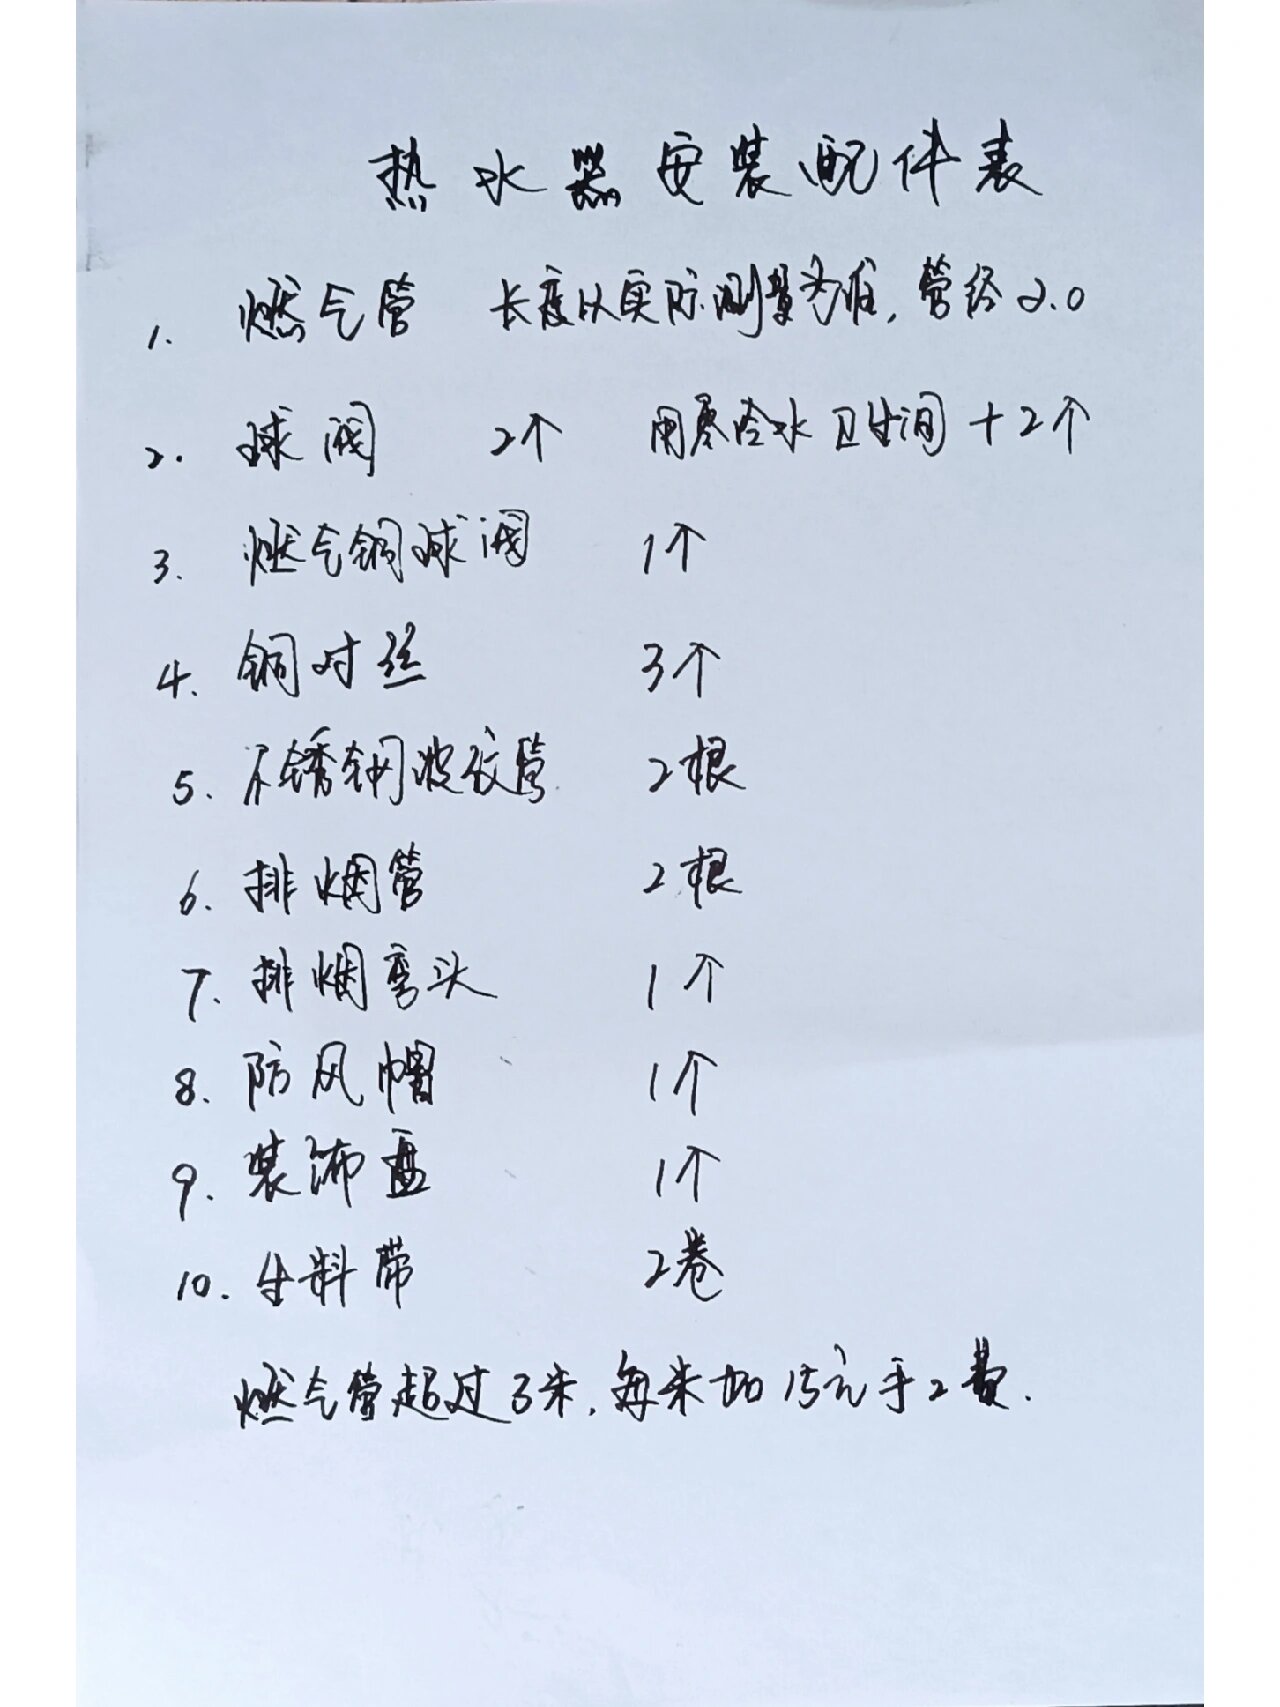 热水器安装配件表
1. 燃气管 长度以实际测量为准,管径2.0
2. 球阀 2个 用零冷水卫生间+2个
3. 燃气铜球阀 1个
4. 铜对丝 3个
5. 不锈钢波纹管 2根
6. 排烟管 2根
7. 排烟弯头 1个
8. 防风帽 1个
9. 装饰盘 1个
10. 生料带 2卷
燃气管超过3米,每米加15元手工费.